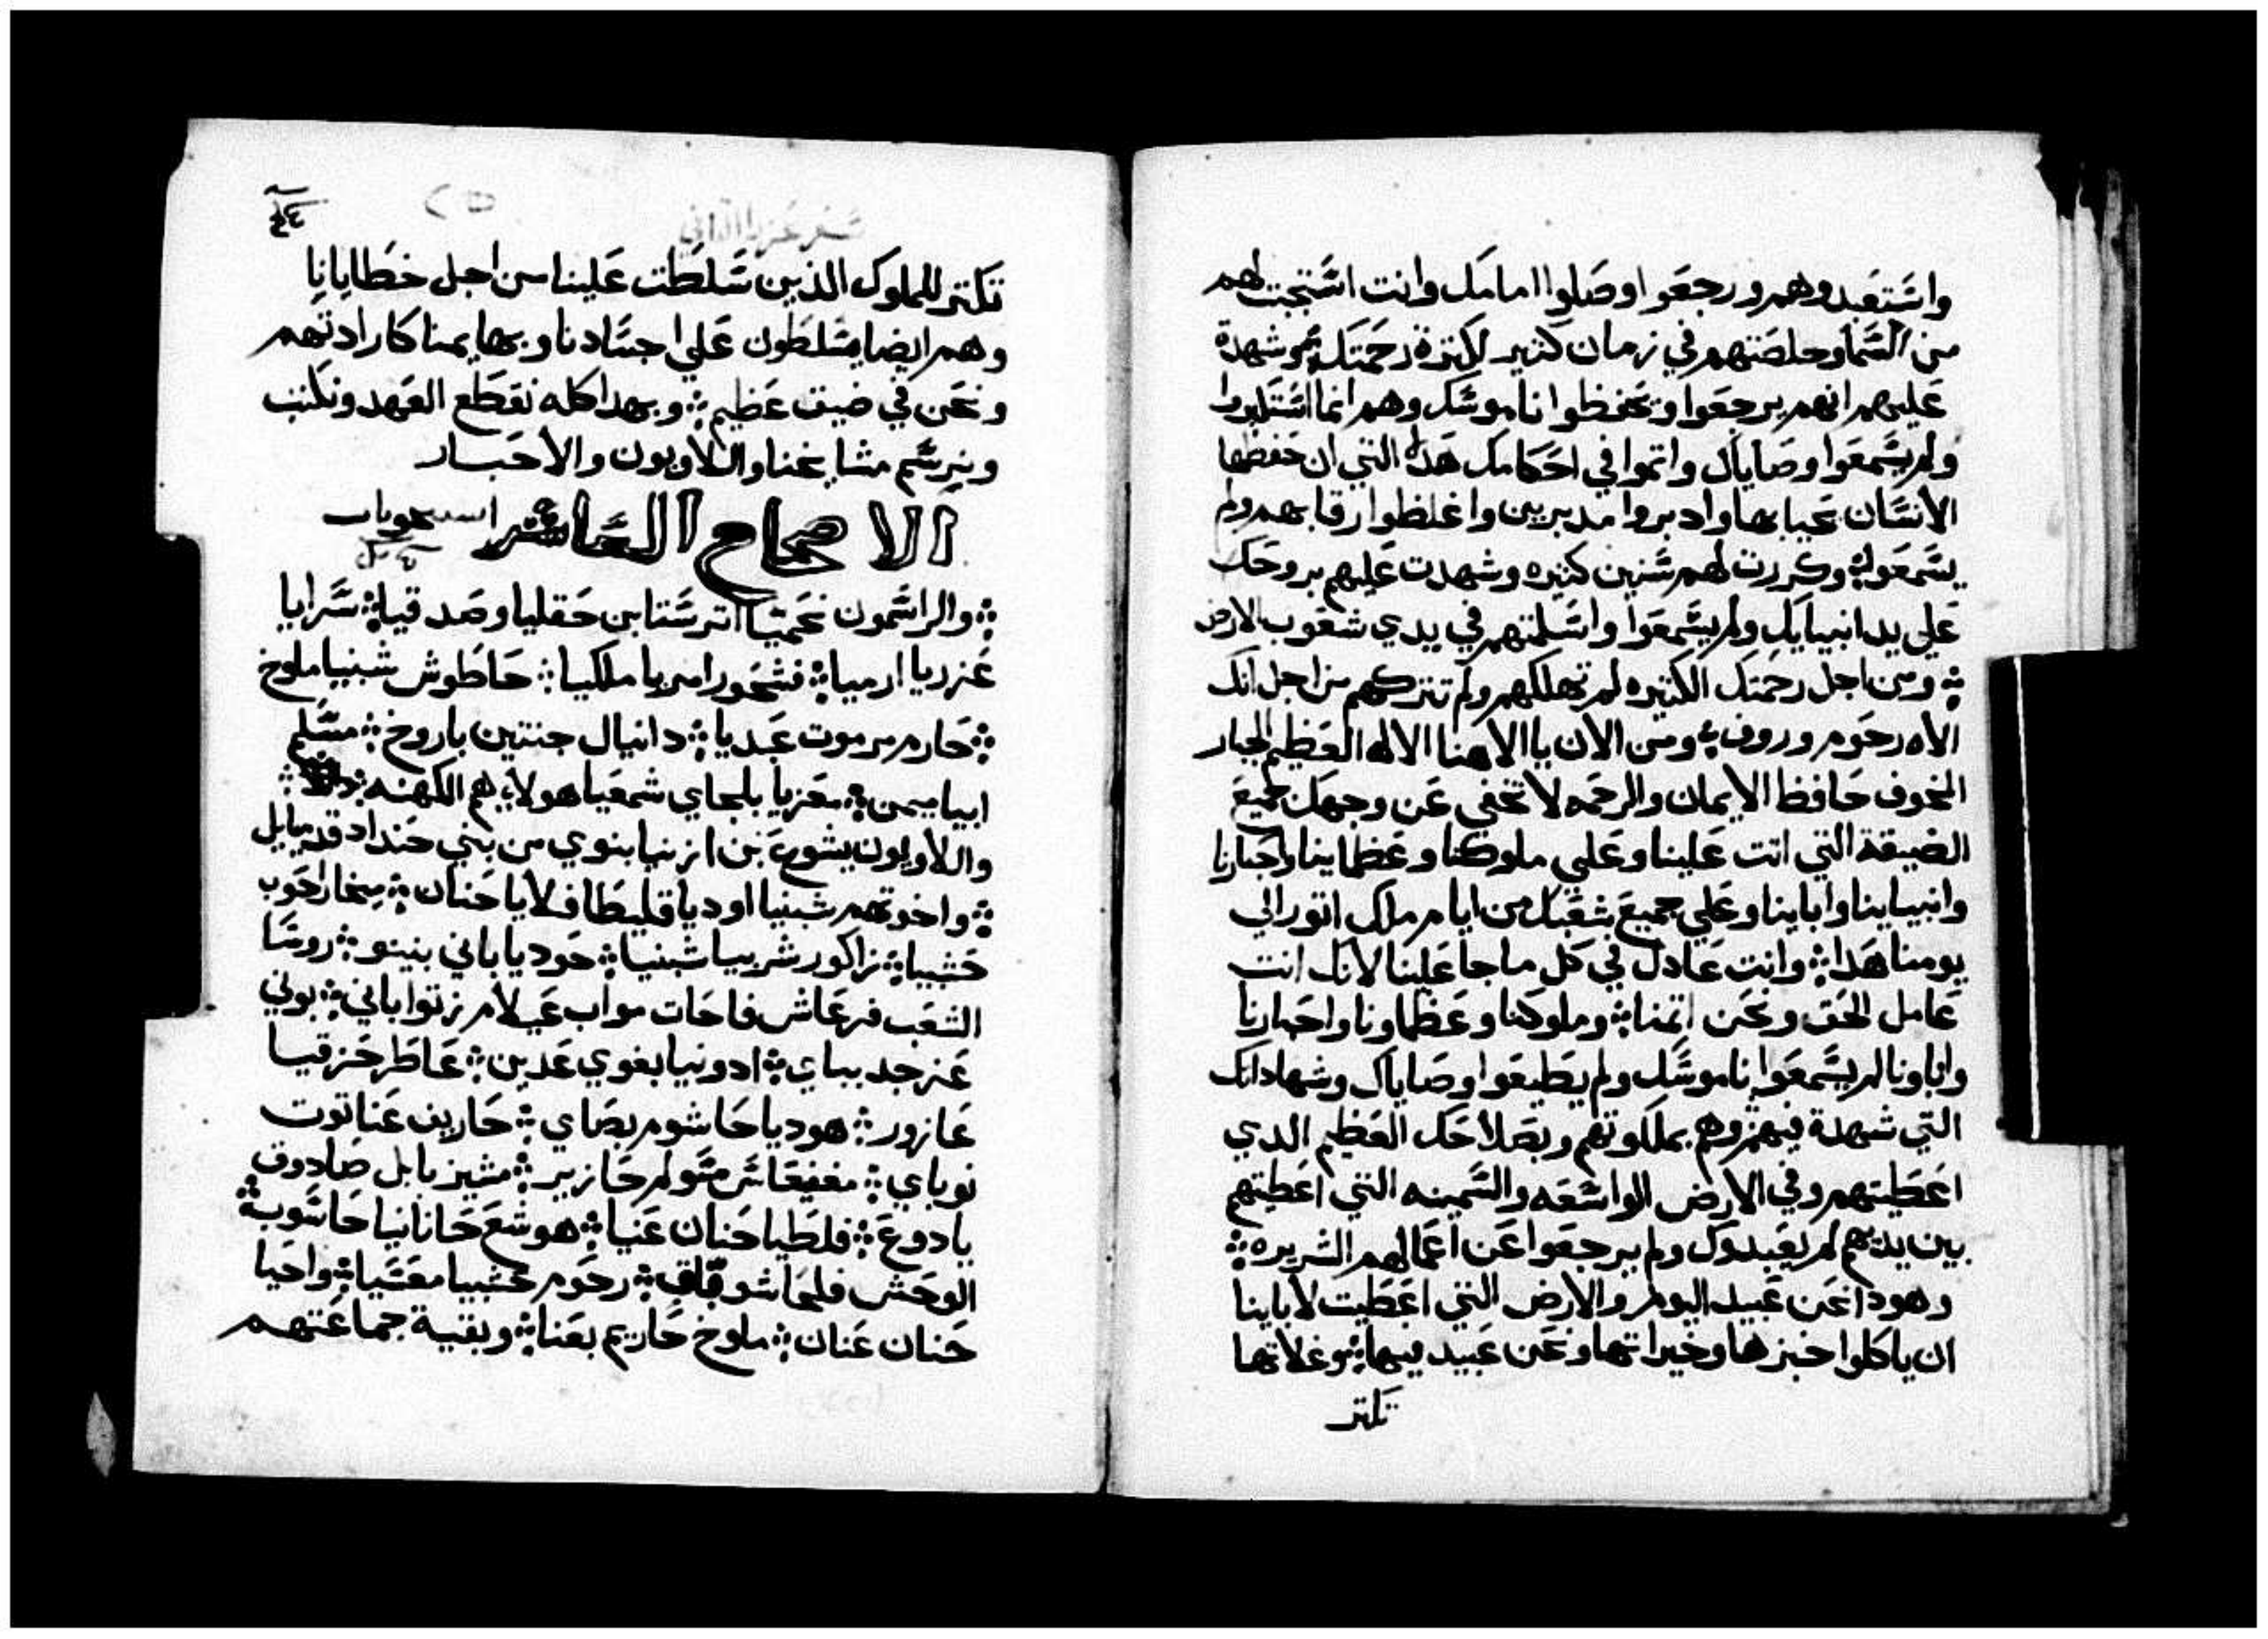 واستعبدوهم ورجعوا وصلوا امامك وانت استجبت لهم
من السما وخلصتهم في زمان كثير لكترة رحمتك ۞ وشهدة
عليهم انهم يرجعوا وتحفظوا ناموسك وهم انما استكبروا
ولم يسمعوا وصاياك واتموا في احكامك هذه التي ان حفظها
الانسان يحيا بها وادبروا مدبرين واغلظوا رقابهم ولم
يسمعوا ۞ وكررت لهم سنين كتيره وشهدت عليهم بروحك
علي يد انبياك ولم يسمعوا واسلمتهم في يدي شعوب الارض
۞ ومن اجل رحمتك الكتيره لم تهلكهم ولم تتركهم من اجل انك
الاه رحوم وروف ۞ ومن الان يا الاهنا الاله العظيم الجبار
المخوف حافظ الايمان والرحمه لا تخفي عن وجهك جميع
الضيقة التي اتت علينا وعلي ملوكنا وعظماينا واحبارنا
وانبياينا وابابنا وعلي جميع شعبك من ايام ملك اتور الي
يومنا هدا ۞ وانت عادل في كل ما جا علينا لانك انت
عامل الحق ونحن اتمنا ۞ وملوكنا وعظماونا واحبارنا
واباونا لم يسمعوا ناموسك ولم يطيعوا وصاياك وشهاداتك
التي شهدة فيهم ۞ وهم بملكوتهم وبصلاحك العظيم الدي
اعطيتهم وفي الارض الواسعه والسمينه التي اعطيتهم
بين يديهم لم يعبدوك ولم يرجعوا عن اعمالهم الشريره ۞
وهودا نحن عبيد اليوم والارض التي اعطيت لاباينا
ان ياكلوا خبزها وخيراتها ونحن عبيد فيها ۞ وغلاتها
تكتر
٤٤
سفر عزرا الثاني
تكتر للملوك الذين سلطت علينا من اجل خطايانا
وهم ايضا يسلطون علي اجسادنا وبهايمنا كارادتهم
ونحن في ضيق عظيم ۞ وبهدا كله نقطع العهد ونكتب
ويرسم مشايخنا واللاويون والاحبار
الاصحاح العاشر
۞ والراسمون نحميا اترستا بن حقليا وصدقيا ۞ سرايا
عزريا ارميا ۞ فشحور امريا ملكيا ۞ حاطوش شبنيا ملوخ
۞ حارم مرموت عبديا ۞ دانيال جنتين باروخ ۞ مسلم
ابيا ميمن ۞ معزيا بلجاي شمعيا هولاي هم الكهنه ۞
واللاويون يشوع بن ازنيا بنوي من بني حنداد قدميايل
۞ واخوتهم شبنيا اوديا قليطا فلايا حنان ۞ ميخا راحوب
حشبيا ۞ زاكور شربيا شبنيا ۞ حوديا باني بنينو ۞ روسا
الشعب فرعاش فاحات مواب عيلام زتوا باني ۞ بوني
عزجد بباي ۞ ادونيا بغوي عدين ۞ عاطر حزقيا
عازور ۞ هوديا حاشوم بصاي ۞ حاريف عناتوت
نوباي ۞ مغفيعاش مسولم حازير ۞ مشيزبابل صادوق
يادوع ۞ فلطيا حنان عنيا ۞ هوشع حانانيا حاسوب ۞
الوحش فلحا شوقاق ۞ رحوم حشبيا معسيا ۞ واحيا
حنان عنان ۞ ملوخ حاريم بعنا ۞ وبقية جماعتهم